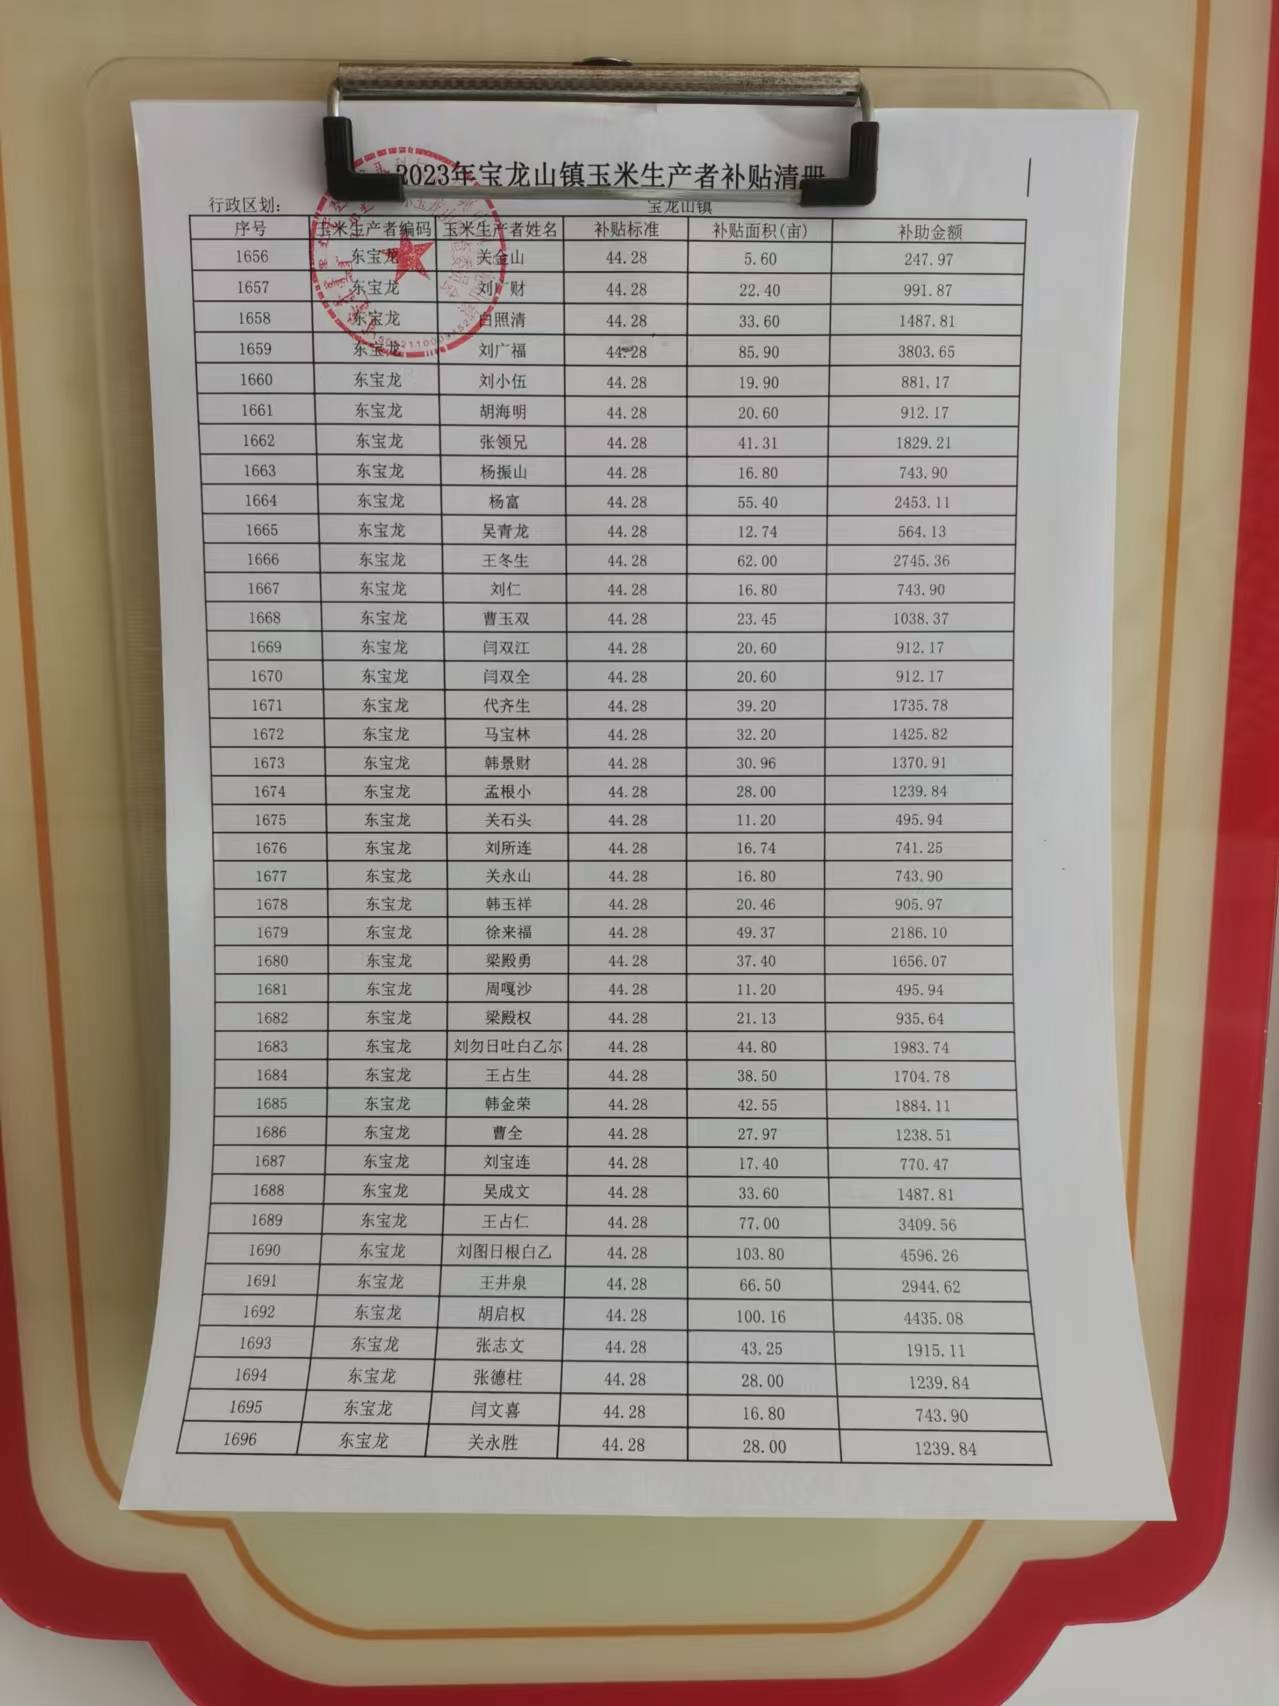 2023年宝龙山镇玉米生产者补贴清册
行政区划： 宝龙山镇
序号 玉米生产者编码 玉米生产者姓名 补贴标准 补贴面积(亩) 补助金额
1656 东宝龙 关金山 44.28 5.60 247.97
1657 东宝龙 刘广财 44.28 22.40 991.87
1658 东宝龙 白照清 44.28 33.60 1487.81
1659 东宝龙 刘广福 44.28 85.90 3803.65
1660 东宝龙 刘小伍 44.28 19.90 881.17
1661 东宝龙 胡海明 44.28 20.60 912.17
1662 东宝龙 张领兄 44.28 41.31 1829.21
1663 东宝龙 杨振山 44.28 16.80 743.90
1664 东宝龙 杨富 44.28 55.40 2453.11
1665 东宝龙 吴青龙 44.28 12.74 564.13
1666 东宝龙 王冬生 44.28 62.00 2745.36
1667 东宝龙 刘仁 44.28 16.80 743.90
1668 东宝龙 曹玉双 44.28 23.45 1038.37
1669 东宝龙 闫双江 44.28 20.60 912.17
1670 东宝龙 闫双全 44.28 20.60 912.17
1671 东宝龙 代齐生 44.28 39.20 1735.78
1672 东宝龙 马宝林 44.28 32.20 1425.82
1673 东宝龙 韩景财 44.28 30.96 1370.91
1674 东宝龙 孟根小 44.28 28.00 1239.84
1675 东宝龙 关石头 44.28 11.20 495.94
1676 东宝龙 刘所连 44.28 16.74 741.25
1677 东宝龙 关永山 44.28 16.80 743.90
1678 东宝龙 韩玉祥 44.28 20.46 905.97
1679 东宝龙 徐来福 44.28 49.37 2186.10
1680 东宝龙 梁殿勇 44.28 37.40 1656.07
1681 东宝龙 周嘎沙 44.28 11.20 495.94
1682 东宝龙 梁殿权 44.28 21.13 935.64
1683 东宝龙 刘勿日吐白乙尔 44.28 44.80 1983.74
1684 东宝龙 王占生 44.28 38.50 1704.78
1685 东宝龙 韩金荣 44.28 42.55 1884.11
1686 东宝龙 曹全 44.28 27.97 1238.51
1687 东宝龙 刘宝连 44.28 17.40 770.47
1688 东宝龙 吴成文 44.28 33.60 1487.81
1689 东宝龙 王占仁 44.28 77.00 3409.56
1690 东宝龙 刘图日根白乙 44.28 103.80 4596.26
1691 东宝龙 王井泉 44.28 66.50 2944.62
1692 东宝龙 胡启权 44.28 100.16 4435.08
1693 东宝龙 张志文 44.28 43.25 1915.11
1694 东宝龙 张德柱 44.28 28.00 1239.84
1695 东宝龙 闫文喜 44.28 16.80 743.90
1696 东宝龙 关永胜 44.28 28.00 1239.84